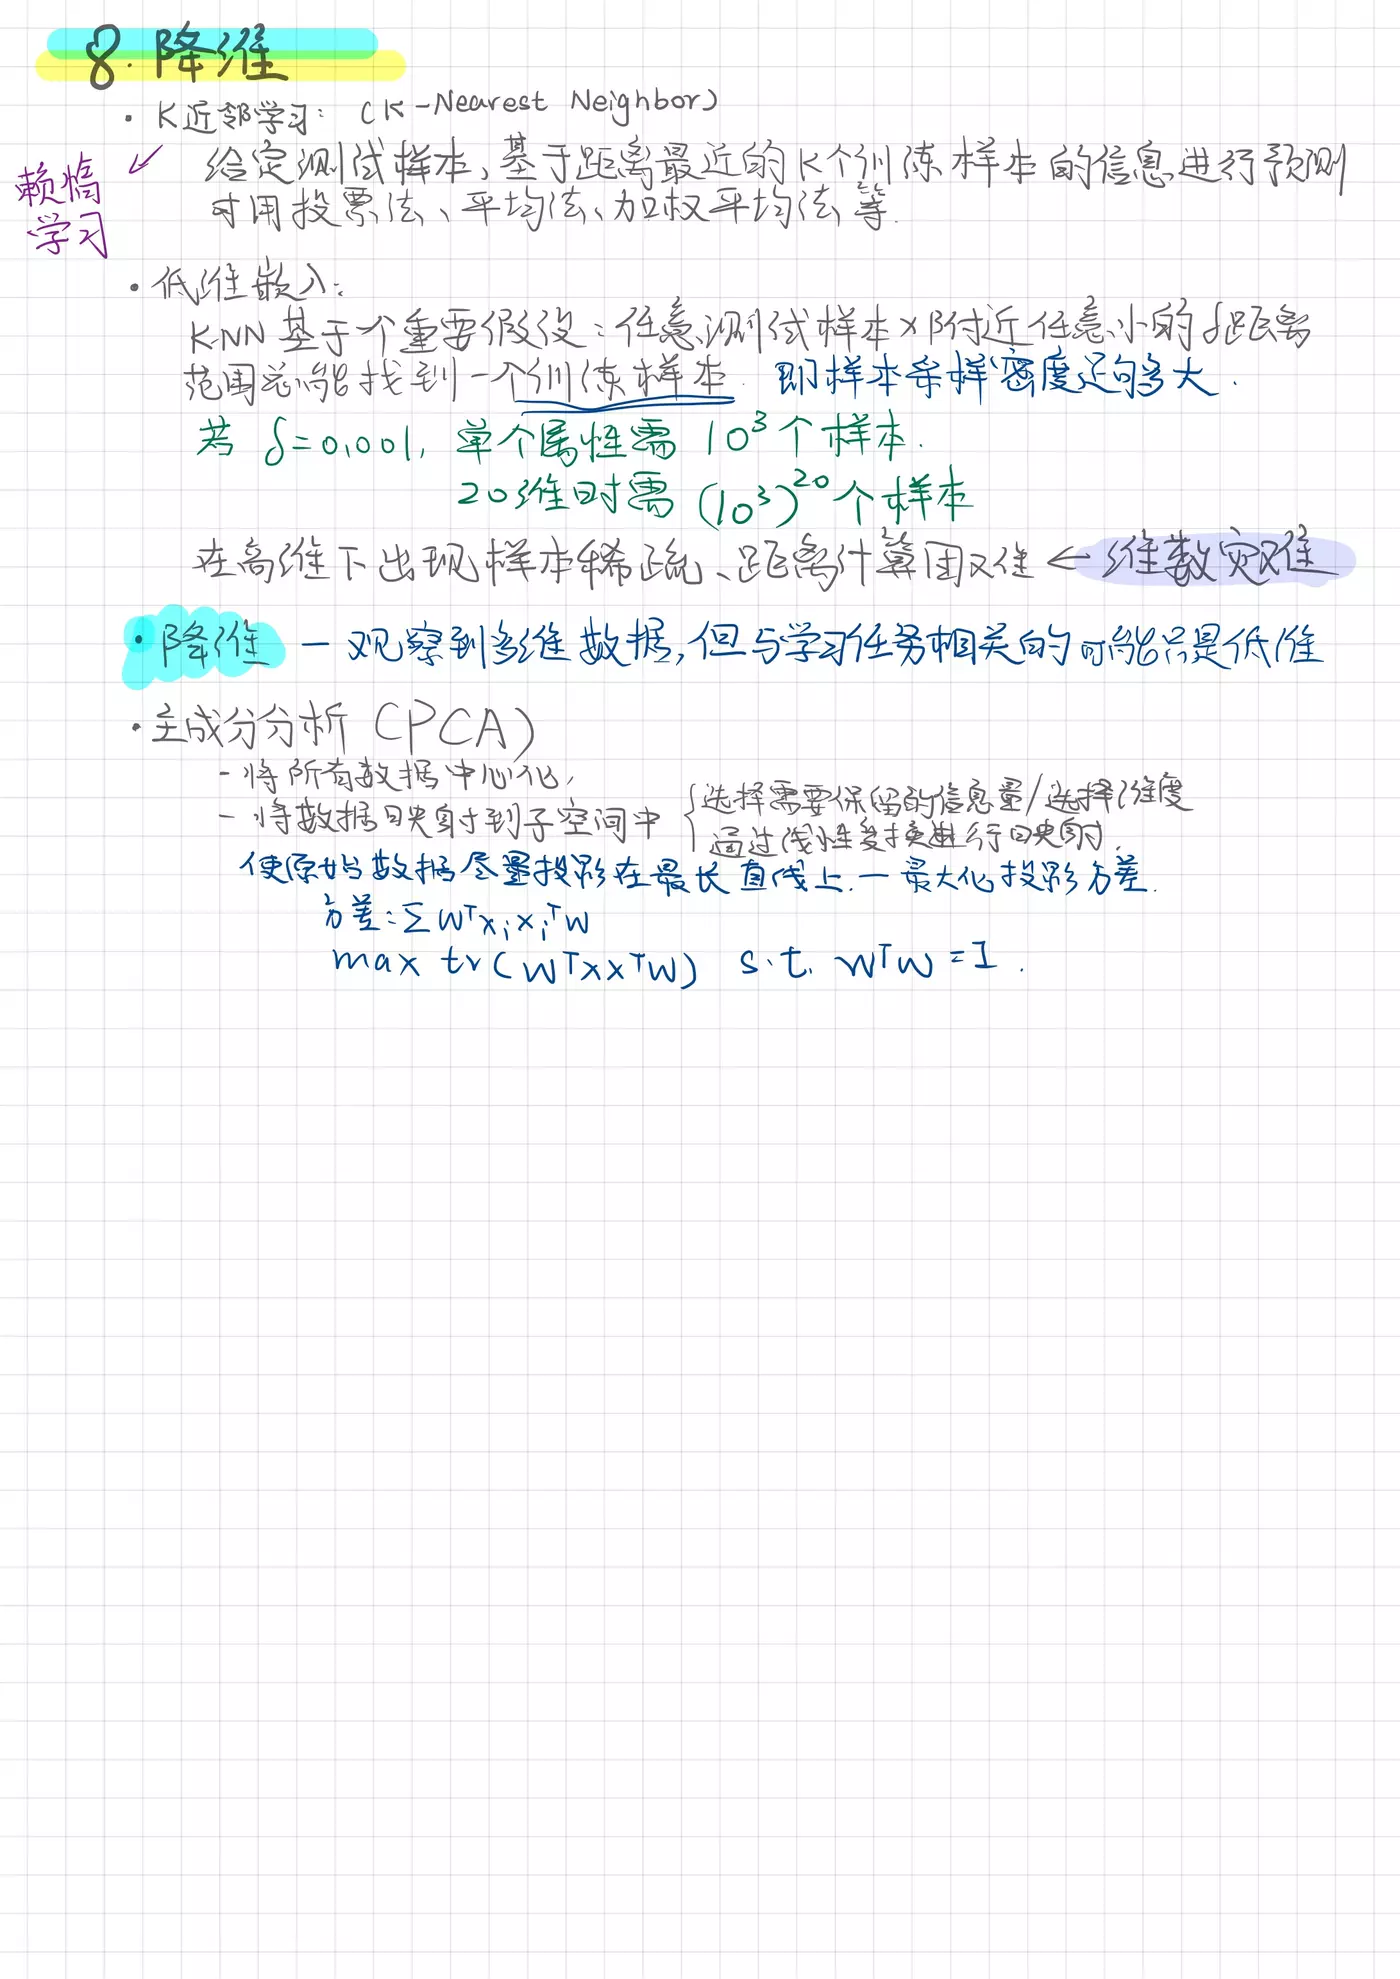 8. 降维
· K近邻学习: (K-Nearest Neighbor)
懒惰学习 ↙ 给定测试样本,基于距离最近的K个训练样本的信息进行预测
可用投票法、平均法、加权平均法等.
· 低维嵌入:
KNN基于个重要假设:任意测试样本x附近任意小的δ距离
范围总能找到一个训练样本. 即样本采样密度足够多大.
若 δ=0.001, 单个属性需 10³个样本.
20维时需 (10³)²⁰个样本
在高维下出现样本稀疏、距离计算困难 ← 维数灾难
· 降维 - 观察到多维数据,但与学习任务相关的可能只是低维
· 主成分分析 (PCA)
- 将所有数据中心化,
- 将数据映射到子空间中 { 选择需要保留的信息量/选择维度
通过线性变换进行映射.
使原始数据尽量投影在最长直线上. - 最大化投影方差.
方差: Σ Wᵀxᵢxᵢᵀ W
max tr(WᵀXXᵀW) s.t. WᵀW = I.